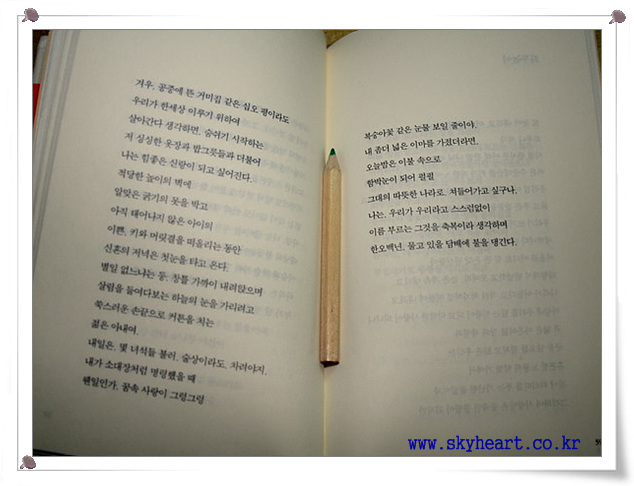 겨우, 공중에 뜬 거미집 같은 십오 평이라도
우리가 한세상 이루기 위하여
살아간다 생각하면, 숨쉬기 시작하는
저 싱싱한 옷장과 밥그릇들과 더불어
나는 힘좋은 신랑이 되고 싶어진다.
적당한 높이의 벽에
알맞은 굵기의 못을 박고
아직 태어나지 않은 아이의
이쁜, 키와 머릿결을 떠올리는 동안
신혼의 저녁은 첫눈을 타고 온다.
별일 없느냐는 둥, 창틀 가까이 내려앉으며
살림을 들여다보는 하늘의 눈을 가리려고
쑥스러운 손끝으로 커튼을 치는
젊은 아내여.
내일은, 몇 녀석들 불러, 술상이라도, 차려야지.
내가 소대장처럼 명령했을 때
웬일인가, 꿈속 사랑이 그렁그렁
복숭아꽃 같은 눈물 보일 줄이야.
내 좀더 넓은 이마를 가졌더라면.
오늘밤은 이불 속으로
함박눈이 되어 펄펄
그대의 따뜻한 나라로, 쳐들어가고 싶구나.
나는, 우리가 우리라고 스스럼없이
이름 부르는 그것을 축복이라 생각하며
한오백년, 물고 있을 담배에 불을 댕긴다.
www.skyheart.co.kr